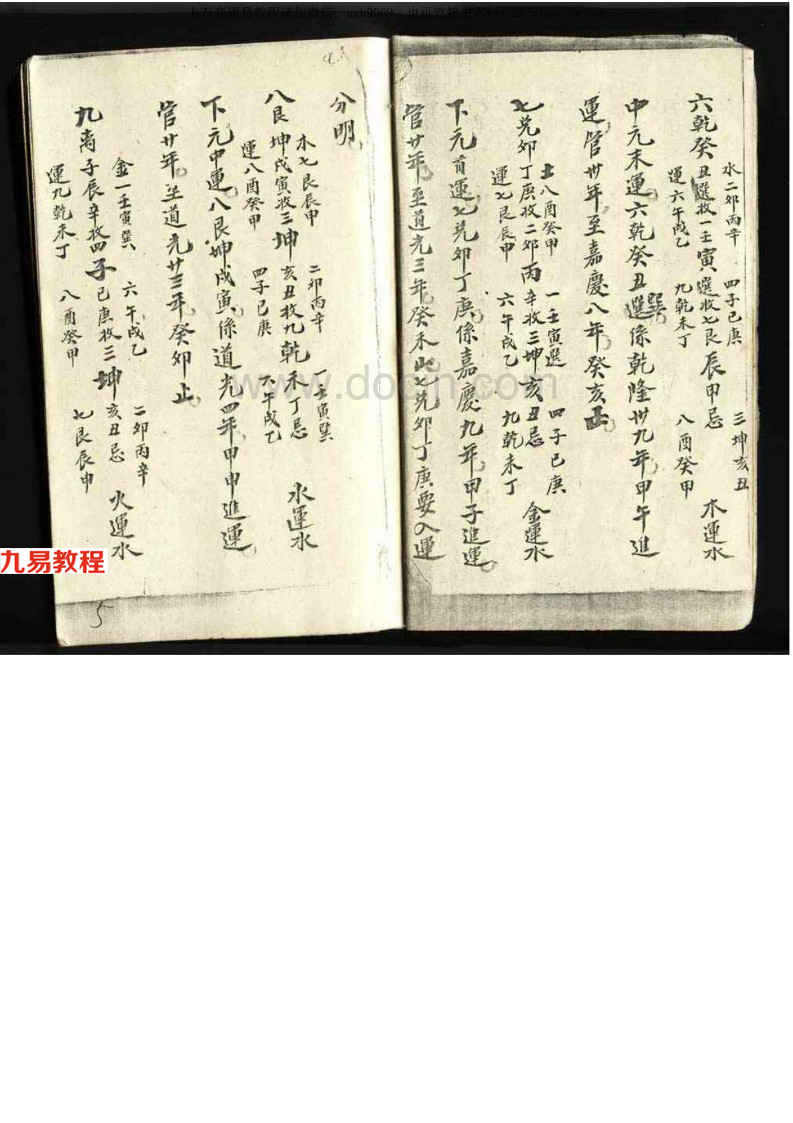 水二卯丙辛 四子己庚 三坤亥丑
六乾癸丑選收一壬寅選收七艮辰甲忌 木運水
運六午戍乙 九乾未丁 八酉癸甲
中元末運六乾癸丑巽係乾隆卅九年甲午進
運管卅年至嘉慶八年癸亥止
土八酉癸甲 一壬寅選 四子己庚
七兑卯丁庚收二卯丙辛收三坤亥丑忌 金運水
運七艮辰甲 六午戍乙 九乾未丁
下元首運七兑卯丁庚係嘉慶九年甲子進運
管廿年至道光三年癸未止七兑卯丁庚要入運
分明
木七艮辰甲 二卯丙辛 一壬寅巽
八艮坤戍寅收三坤亥丑收九乾未丁忌 水運水
運八酉癸甲 四子己庚 六午戍乙
下元中運八艮坤戍寅係道光四年甲申進運
管廿年至道光廿三年癸卯止
金一壬寅巽 六午戍乙 二卯丙辛
九离子辰辛收四子己庚收三坤亥丑忌 火運水
運九乾未丁 八酉癸甲 七艮辰申
5
www.docin.com
九易教程